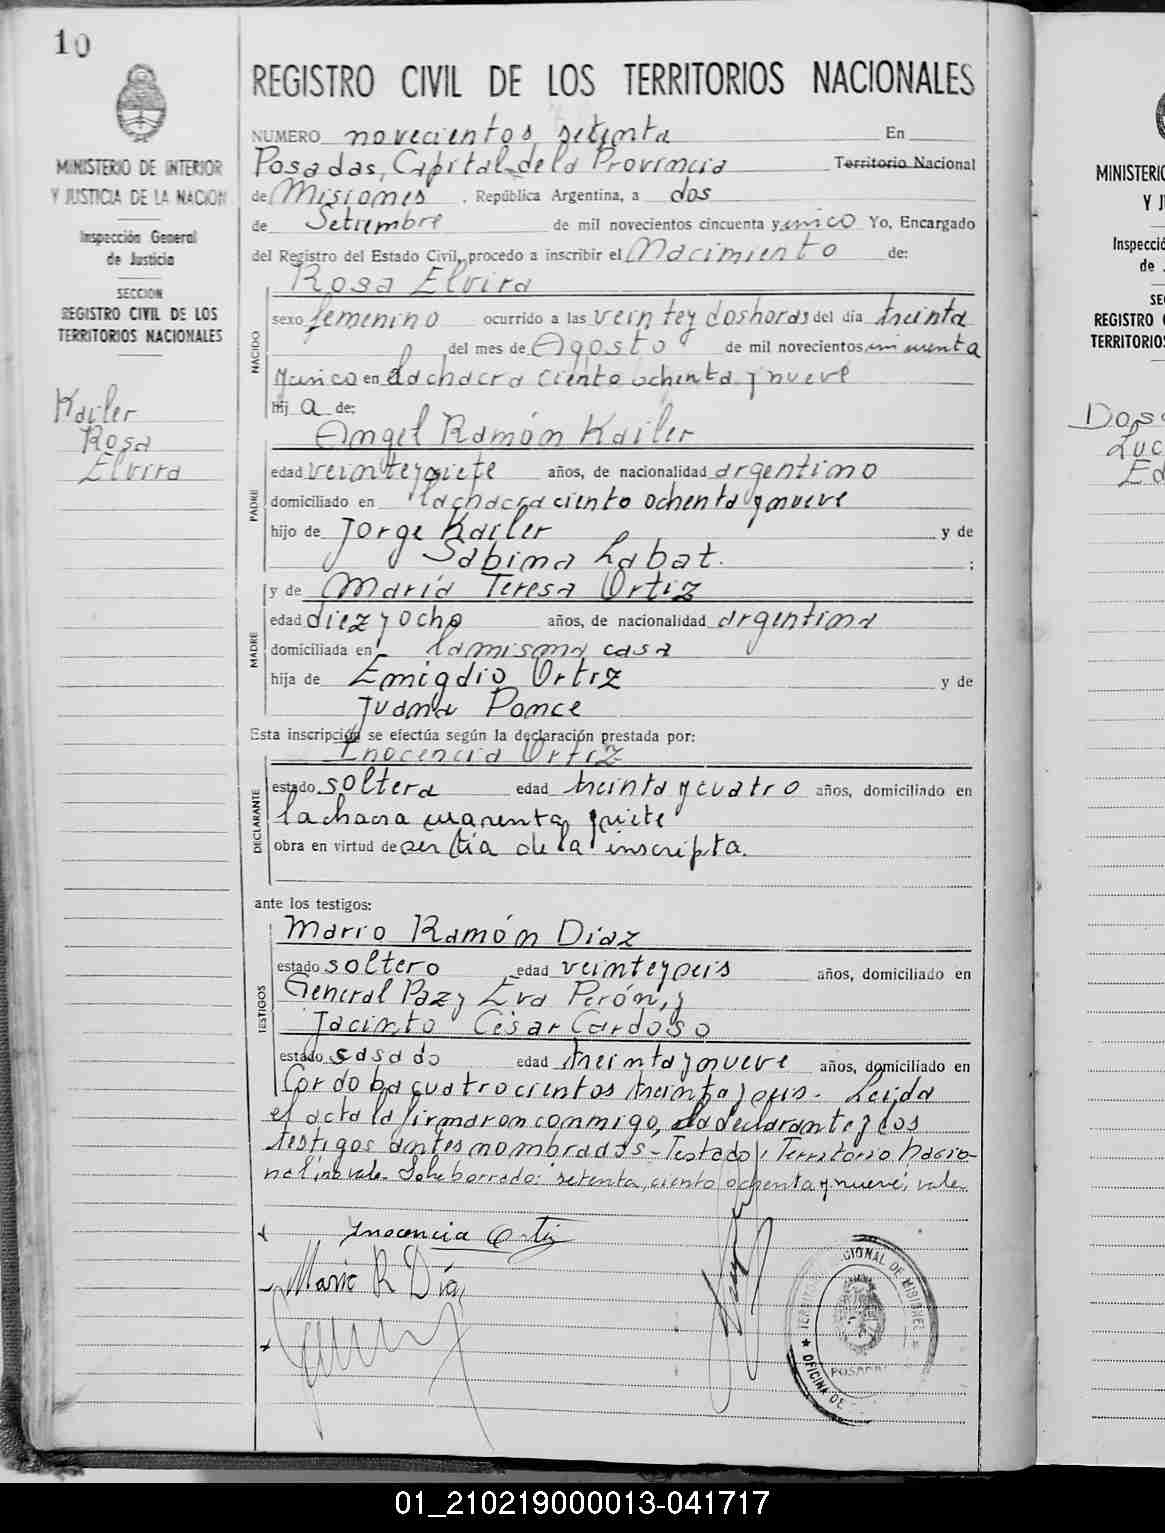 10
MINISTERIO DE INTERIOR
Y JUSTICIA DE LA NACION
Inspección General
de Justicia
SECCION
REGISTRO CIVIL DE LOS
TERRITORIOS NACIONALES
Kailer
Rosa
Elvira
REGISTRO CIVIL DE LOS TERRITORIOS NACIONALES
NUMERO novecientos setenta En
Posadas, Capital de la Provincia Territorio Nacional
de Misiones, República Argentina, a dos
de Setiembre de mil novecientos cincuenta y cinco Yo, Encargado
del Registro del Estado Civil, procedo a inscribir el Nacimiento de:
Rosa Elvira
NACIDO
sexo femenino ocurrido a las veintey doshoras del día treinta
del mes de Agosto de mil novecientos cincuenta
y cinco en la chacra ciento ochenta y nueve
hij a de:
Angel Ramón Kailer
PADRE
edad veinteysiete años, de nacionalidad argentino
domiciliado en la chacra ciento ochenta y nueve
hijo de Jorge Kailer y de
Sabina Labat. ;
y de María Teresa Ortiz
MADRE
edad diez y ocho años, de nacionalidad argentina
domiciliada en la misma casa
hija de Emigdio Ortiz y de
Juana Ponce
Esta inscripción se efectúa según la declaración prestada por:
Inocencia Ortiz
DECLARANTE
estado soltera edad treinta y cuatro años, domiciliado en
la chacra cuarenta y siete
obra en virtud de ser tía de la inscripta.
ante los testigos:
TESTIGOS
Mario Ramón Diaz
estado soltero edad veinteyseis años, domiciliado en
General Paz y Eva Perón, y
Jacinto César Cardoso
estado casado edad treinta y nueve años, domiciliado en
Cordoba cuatrocientos treinta y seis. Leida
el acta la firmaron conmigo, la declarante y los
testigos antes nombrados - Testado: Territorio Nacio-
nal: no vale. Sobreborrado: setenta, ciento ochenta y nueve; vale
Inocencia Ortiz
Mario R Día
TERRITORIO NACIONAL DE MISIONES
OFICINA DE
POSADAS
MINISTERIO
Y J
Inspecció
de
SE
REGISTRO
TERRITORIOS
Dos
Luc
Ed
01_210219000013-041717